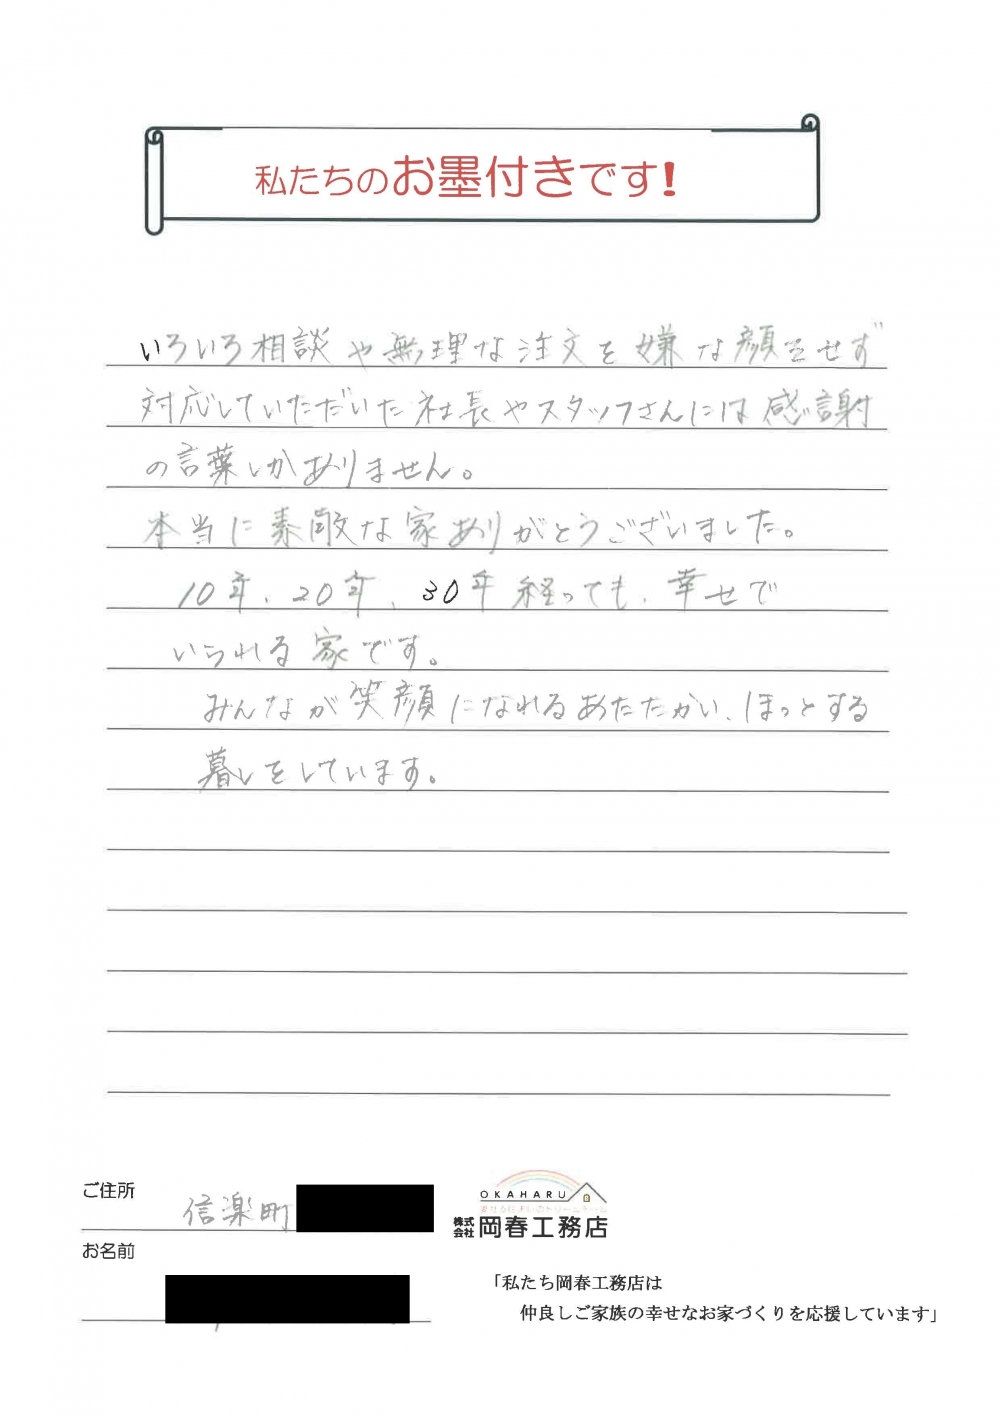 私たちのお墨付きです!
いろいろ相談や無理な注文を嫌な顔をせず
対応していただいた社長やスタッフさんには感謝
の言葉しかありません。
本当に素敵な家ありがとうございました。
10年、20年、30年経っても、幸せで
いられる家です。
みんなが笑顔になれるあたたかい、ほっとする
暮しをしています。
ご住所
信楽町
お名前
OKAHARU
株式会社 岡春工務店
「私たち岡春工務店は
仲良しご家族の幸せなお家づくりを応援しています」